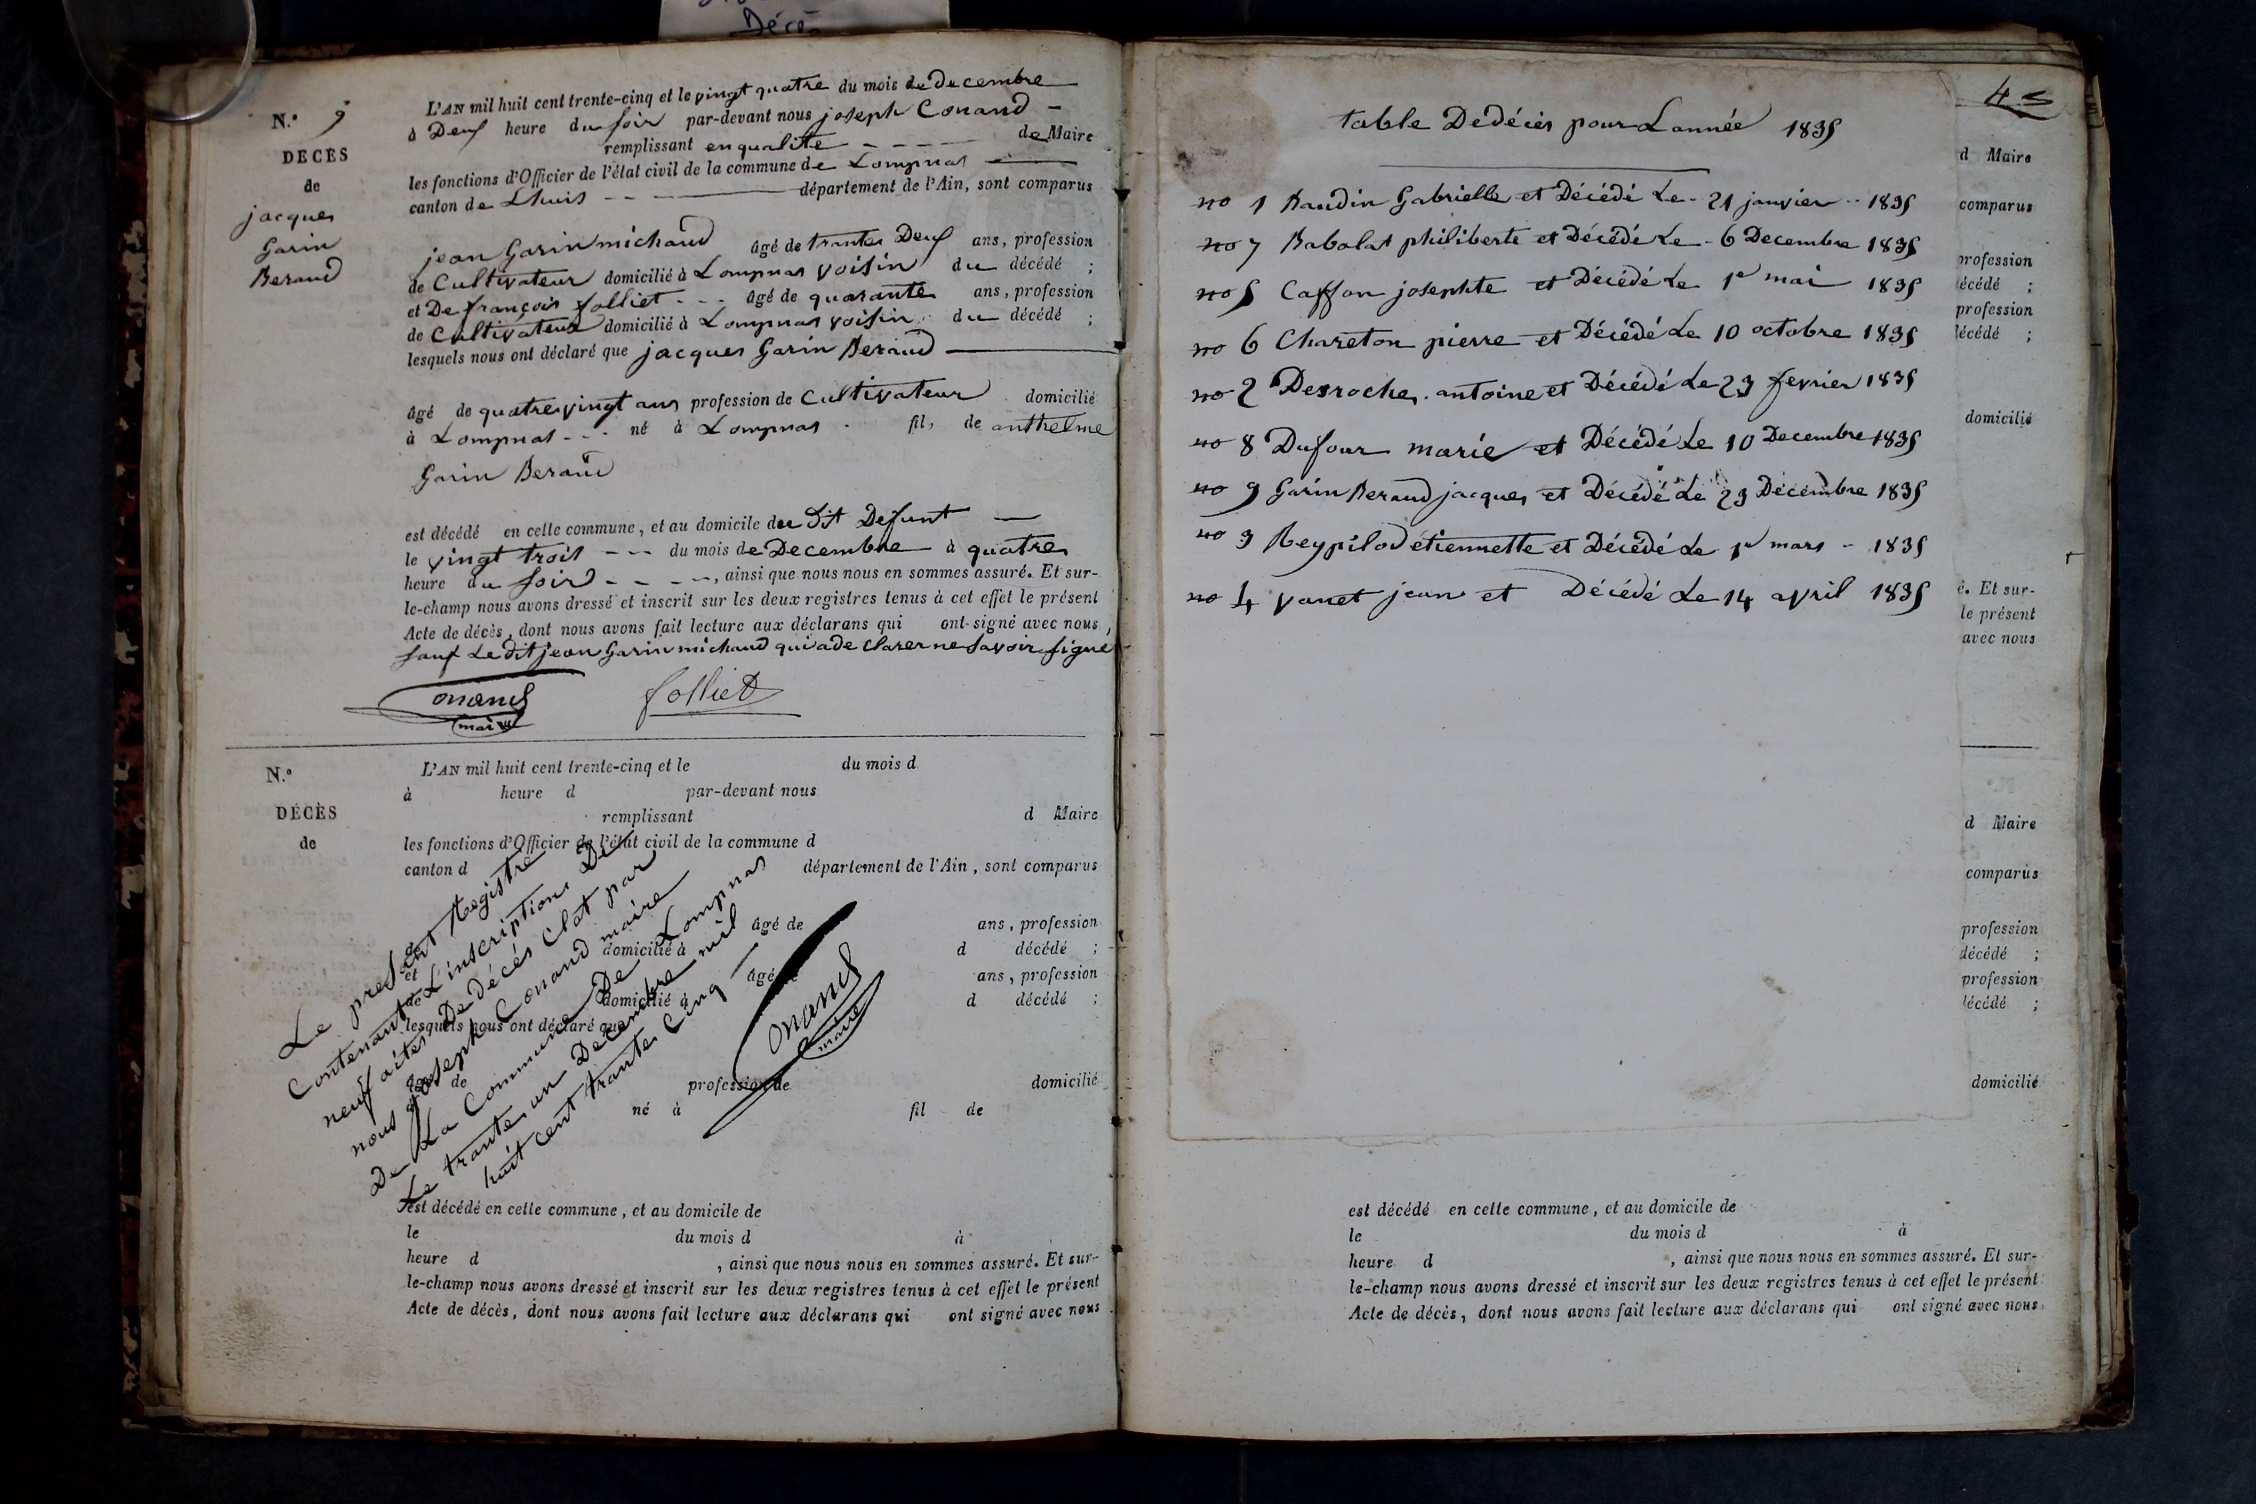 Décè
N.° 9
DÉCÈS
de
jacques
Garin
Beraud
L'AN mil huit cent trente-cinq et le vingt quatre du mois de Decembre
à Deux heure du soir par-devant nous joseph Conand
remplissant en qualité de Maire
les fonctions d'Officier de l'état civil de la commune de Lompnas
canton de Lhuis département de l'Ain, sont comparus
jean Garin michaud âgé de trante Deux ans, profession
de Cultivateur domicilié à Lompnas voisin du décédé ;
et De françois folliet âgé de quarante ans, profession
de Cultivateur domicilié à Lompnas voisin du décédé ;
lesquels nous ont déclaré que jacques Garin Beraud
âgé de quatrevingt ans profession de Cultivateur domicilié
à Lompnas né à Lompnas fils de anthelme
Garin Beraud
est décédé en cette commune, et au domicile du Dit Defunt
le vingt trois du mois de Decembre à quatre
heure du soir, ainsi que nous nous en sommes assuré. Et sur-
le-champ nous avons dressé et inscrit sur les deux registres tenus à cet effet le présent
Acte de décès, dont nous avons fait lecture aux déclarans qui ont signé avec nous,
sauf Le dit jean Garin michaud qui a de clarer ne savoir signé
Conand
maire
folliet
N.°
DÉCÈS
de
L'AN mil huit cent trente-cinq et le du mois d
à heure d par-devant nous
remplissant d Maire
les fonctions d'Officier de l'état civil de la commune d
canton d département de l'Ain, sont comparus
âgé de ans, profession
de domicilié à d décédé ;
et âgé de ans, profession
de domicilié à d décédé ;
lesquels nous ont déclaré que
âgé de profession de domicilié
né à fil de
Le present Registre
Contenant L'inscription De
neuf actes De décés Clot par
nous joseph Conand maire
De La Commune De Lompnas
Le trante un Decembre mil
huit cent trante Cinq
Conand
maire
est décédé en cette commune, et au domicile de
le du mois d à
heure d , ainsi que nous nous en sommes assuré. Et sur-
le-champ nous avons dressé et inscrit sur les deux registres tenus à cet effet le présent
Acte de décès, dont nous avons fait lecture aux déclarans qui ont signé avec nous
table De décès pour L année 1835
no 1 Baudin Gabrielle et Décédé Le 21 janvier 1835
no 7 Babolat philiberte et Décédé Le 6 Decembre 1835
no 5 Caffon josephte et Décédé Le 1er mai 1835
no 6 Chareton pierre et Décédé Le 10 octobre 1835
no 2 Desroches antoine et Décédé Le 23 fevrier 1835
no 8 Dufour marie et Décédé Le 10 Decembre 1835
no 9 Garin Beraud jacques et Décédé Le 23 Décembre 1835
no 3 Reypilod etiennette et Décédé Le 1er mars 1835
no 4 vanet jean et Décédé Le 14 avril 1835
d Maire
comparus
profession
décédé ;
profession
décédé ;
domicilié
é. Et sur-
le présent
avec nous
d Maire
comparus
profession
décédé ;
profession
décédé ;
domicilié
est décédé en cette commune, et au domicile de
le du mois d à
heure d , ainsi que nous nous en sommes assuré. Et sur-
le-champ nous avons dressé et inscrit sur les deux registres tenus à cet effet le présent
Acte de décès, dont nous avons fait lecture aux déclarans qui ont signé avec nous